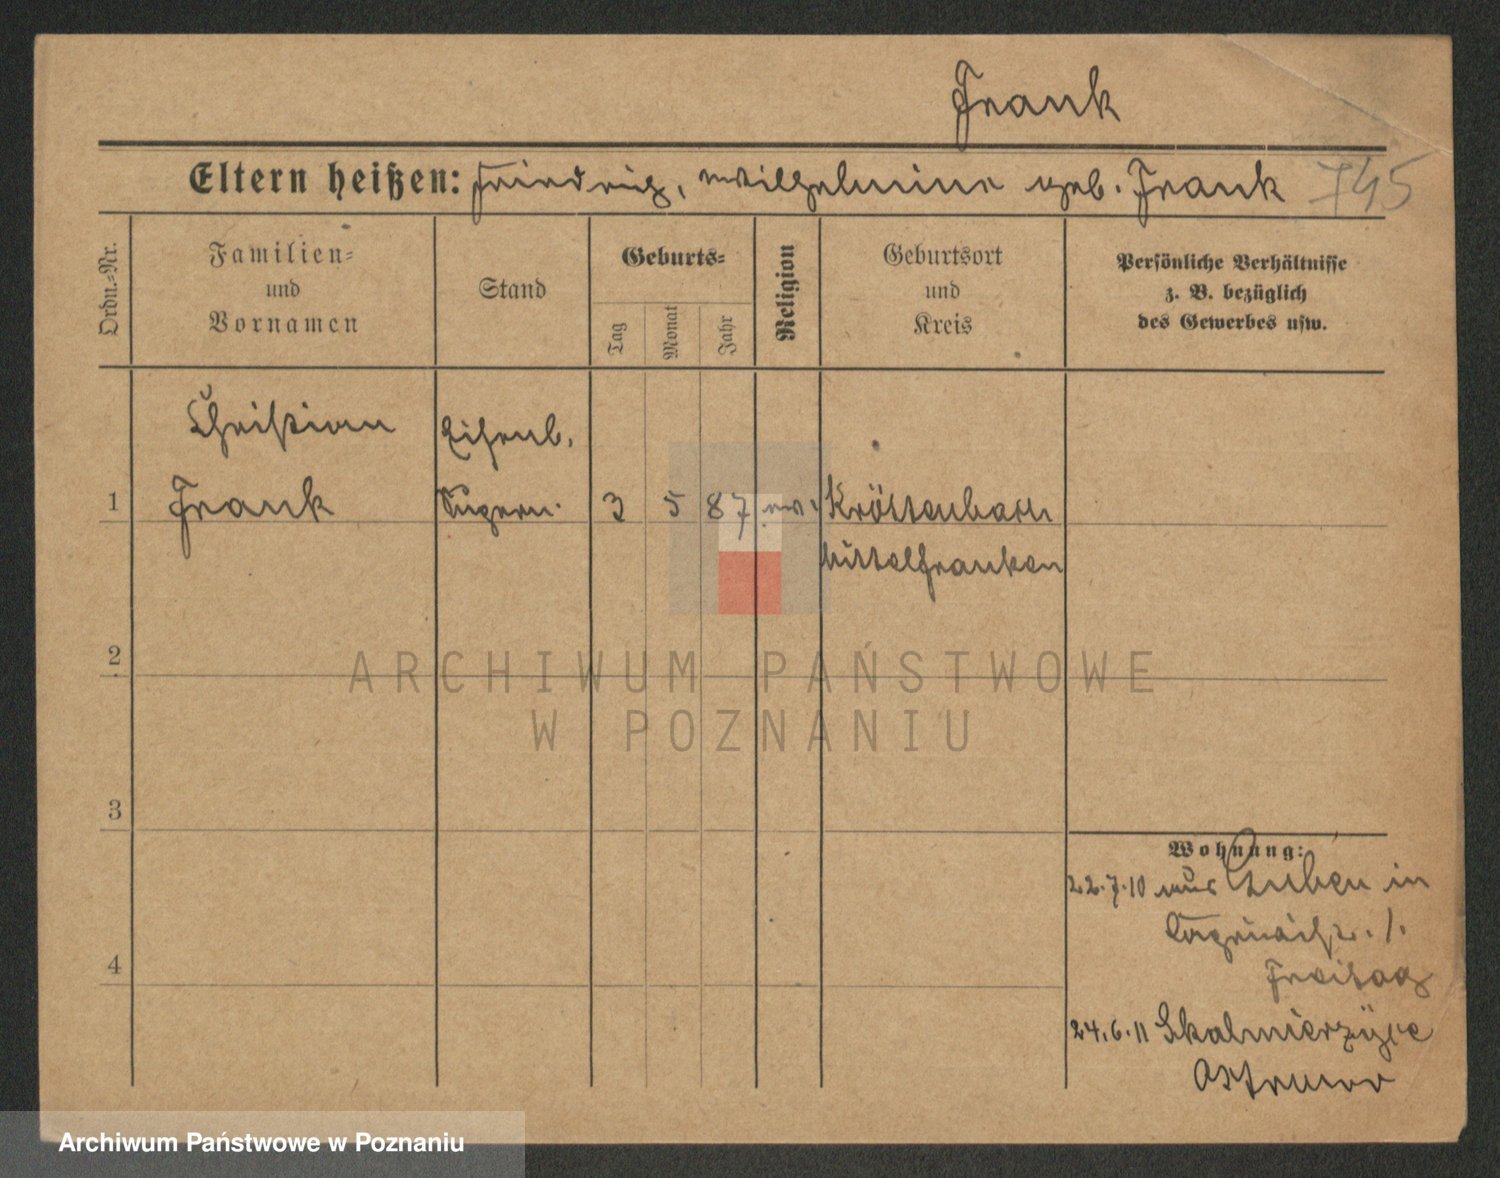 Frank
Eltern heißen: Friedrich, Wilhelmine geb. Frank 745
Ordn.-Nr.
Familien-
und
Vornamen
Stand
Geburts-
Tag
Monat
Jahr
Religion
Geburtsort
und
Kreis
Persönliche Verhältnisse
z. B. bezüglich
des Gewerbes usw.
Christian
Eisenb.
1 Frank 3 5 87 ev. Kröttenbach
Mittelfranken
2
3
4
Wohnung:
22.7.10 aus Luben in
Freitag
24.6.11 Skalmierzyce
Ostrowo
ARCHIWUM PAŃSTWOWE
W POZNANIU
Archiwum Państwowe w Poznaniu